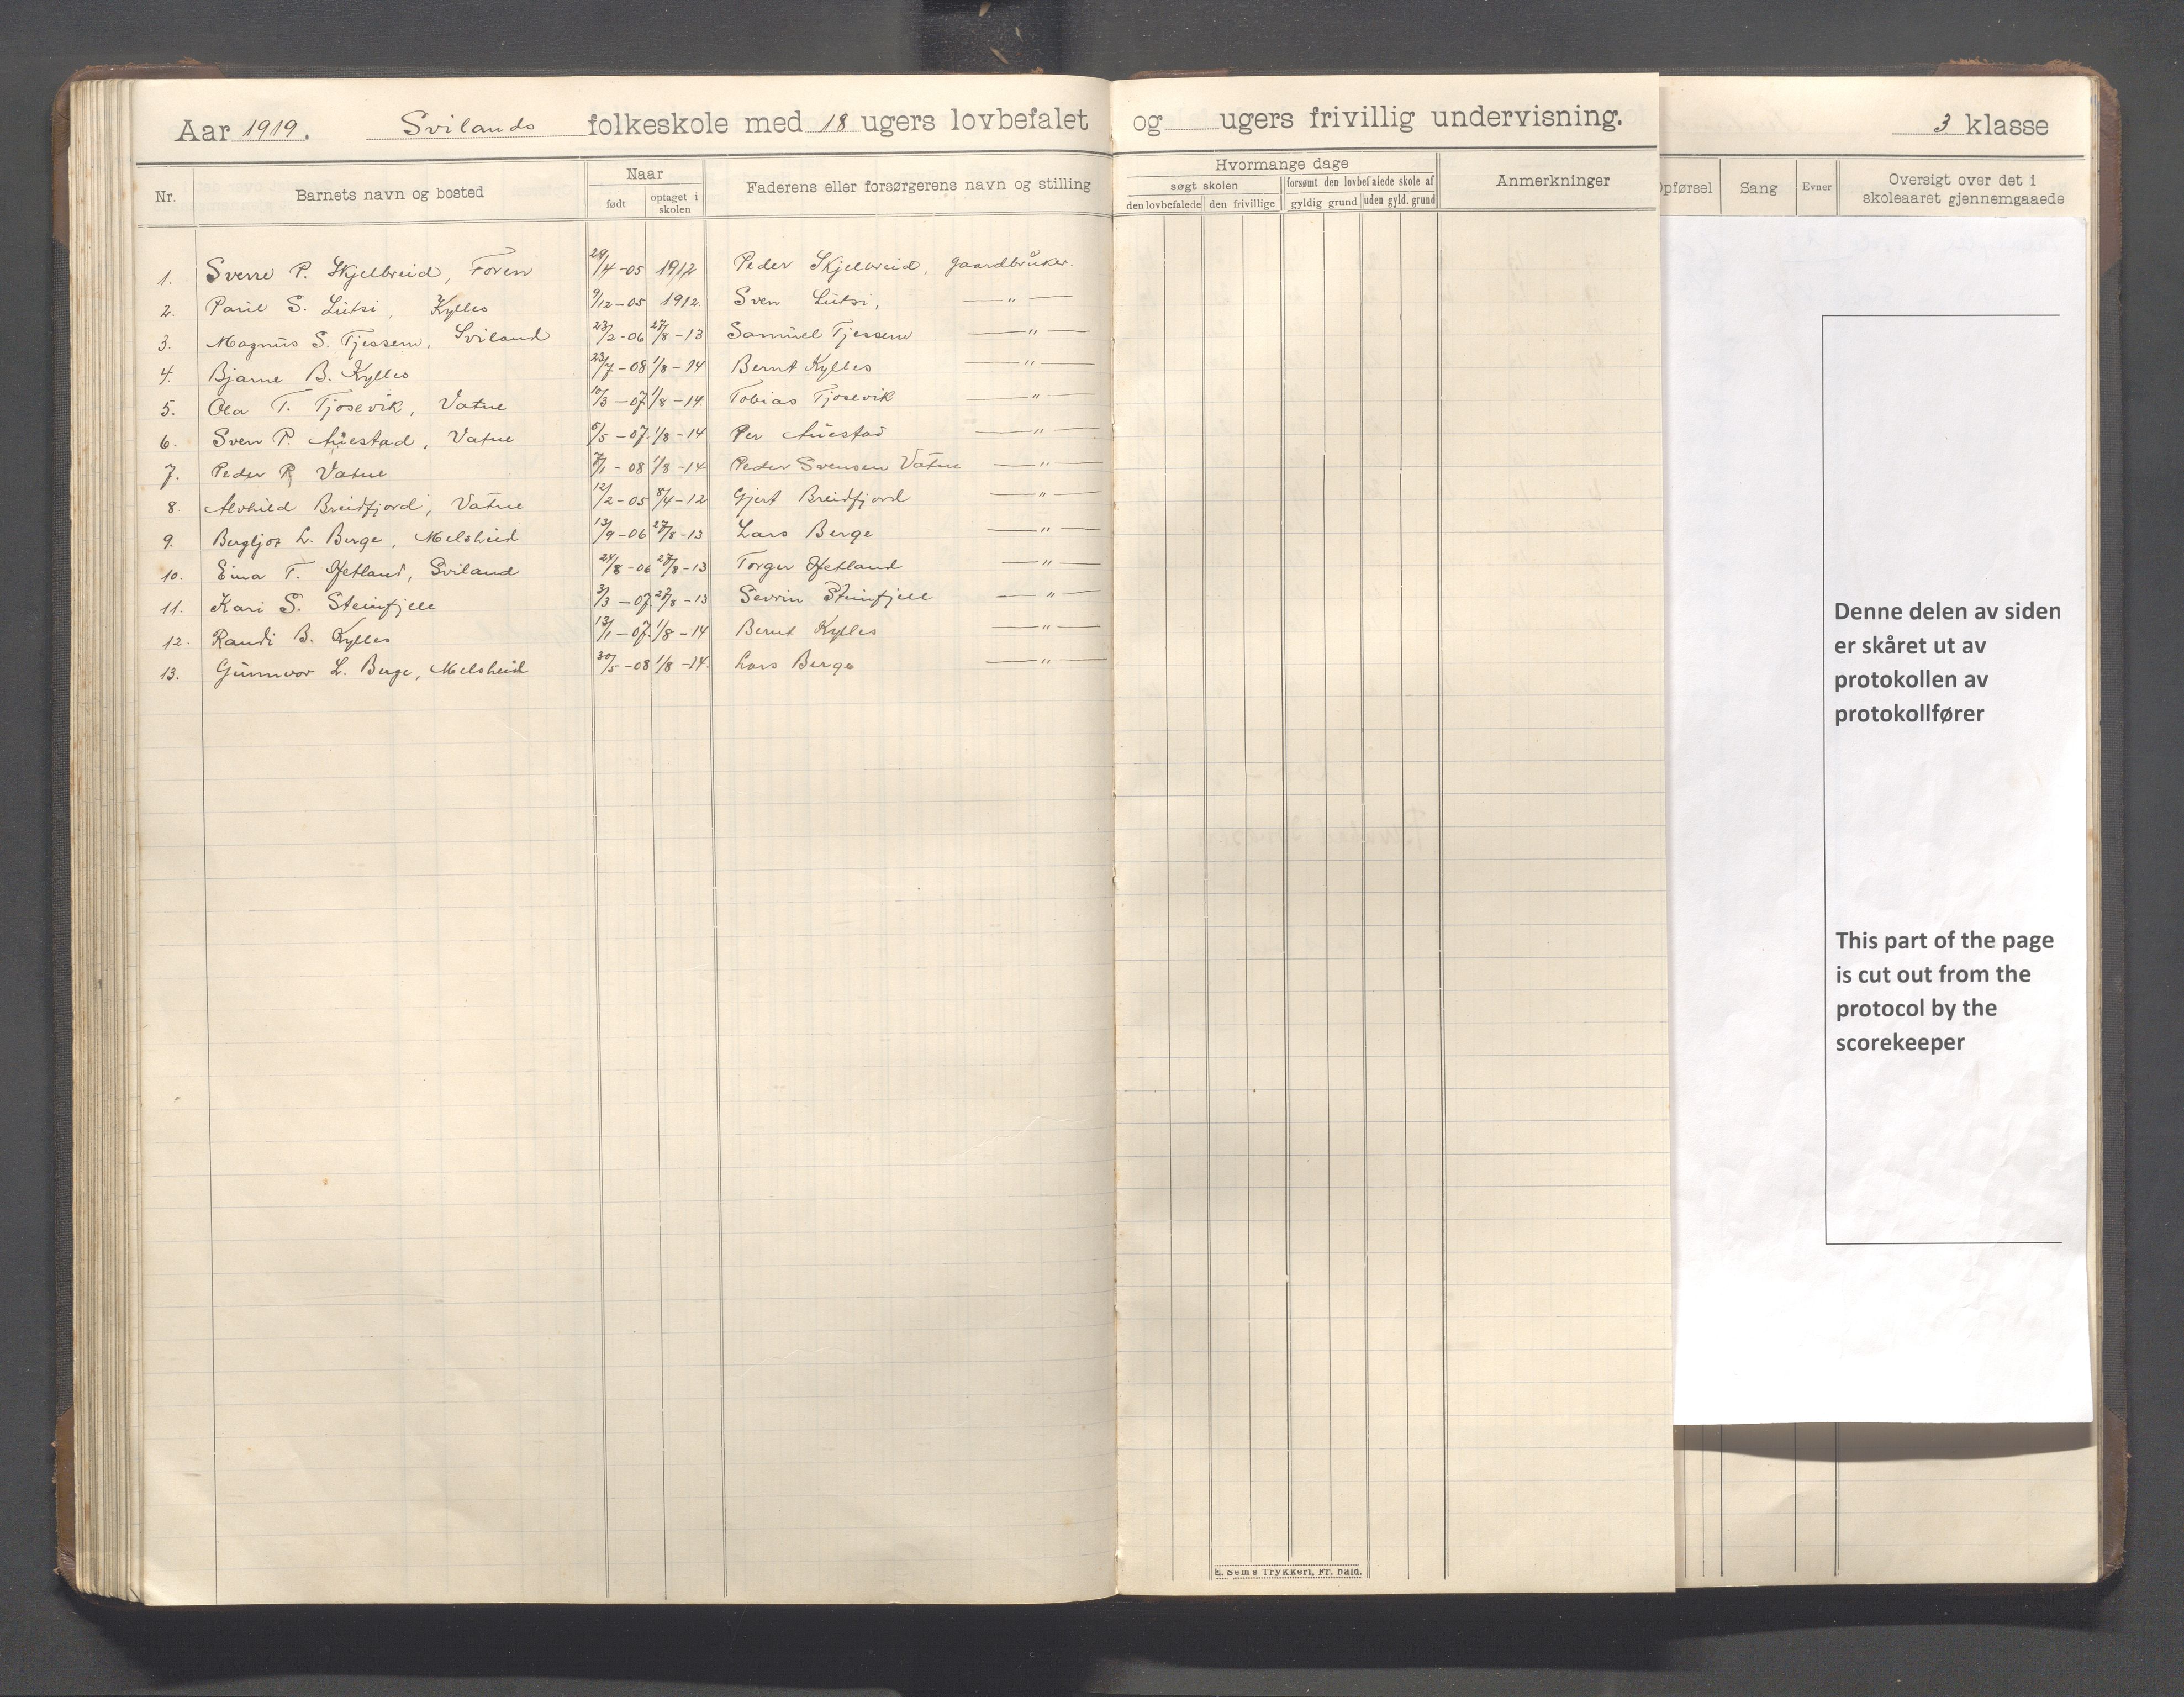 Aar 1919. Svilands folkeskole med 18 ugers lovbefalet og ugers frivillig undervisning. 3 klasse
Nr. Barnets navn og bosted Naar født optaget i skolen Faderens eller forsørgerens navn og stilling Hvormange dage søgt skolen den lovbefalede den frivillige forsømt den lovbefalede skole af gyldig grund uden gyld. grund Anmerkninger Opførsel Sang Evner Oversigt over det i skoleaaret gjennemgaaede
1. Sverre P. Skjelbreid, Foren 29/4-05 1912 Peder Skjelbreid, gaardbruker.
2. Paul S. Lutsi, Kylles 9/12-05 1912. Sven Lutsi, — " —
3. Magnus S. Tjessem, Sviland 23/2-06 27/8-13 Samuel Tjessem — " —
4. Bjarne B. Kylles 23/7-08 1/8-14 Bernt Kylles — " —
5. Ola T. Tjosevik, Vatne 10/3-07 1/8-14. Tobias Tjosevik — " —
6. Sven P. Auestad, Vatne 6/5-07. 1/8-14 Per Auestad — " —
7. Peder P. Vatne 7/1-08 1/8-14 Peder Svensen Vatne — " —
8. Alvhild Breidfjord, Vatne 12/2-05 8/4-12 Gjert Breidfjord — " —
9. Bergljot L. Berge, Melsheid 13/9-06 27/8-13 Lars Berge — " —
10. Eina T. Øfetland, Sviland 24/8-06 27/8-13 Torger Øfetland — " —
11. Kari S. Steinfjell 3/3-07. 27/8-13 Sevrin Steinfjell — " —
12. Randi B. Kylles 13/1-07. 1/8-14 Bernt Kylles — " —
13. Gunnvor L. Berge, Melsheid 30/5-08 1/8-14. Lars Berge — " —
Denne delen av siden
er skåret ut av
protokollen av
protokollfører
This part of the page
is cut out from the
protocol by the
scorekeeper
E. Sem's Trykkeri, Fr. hald.